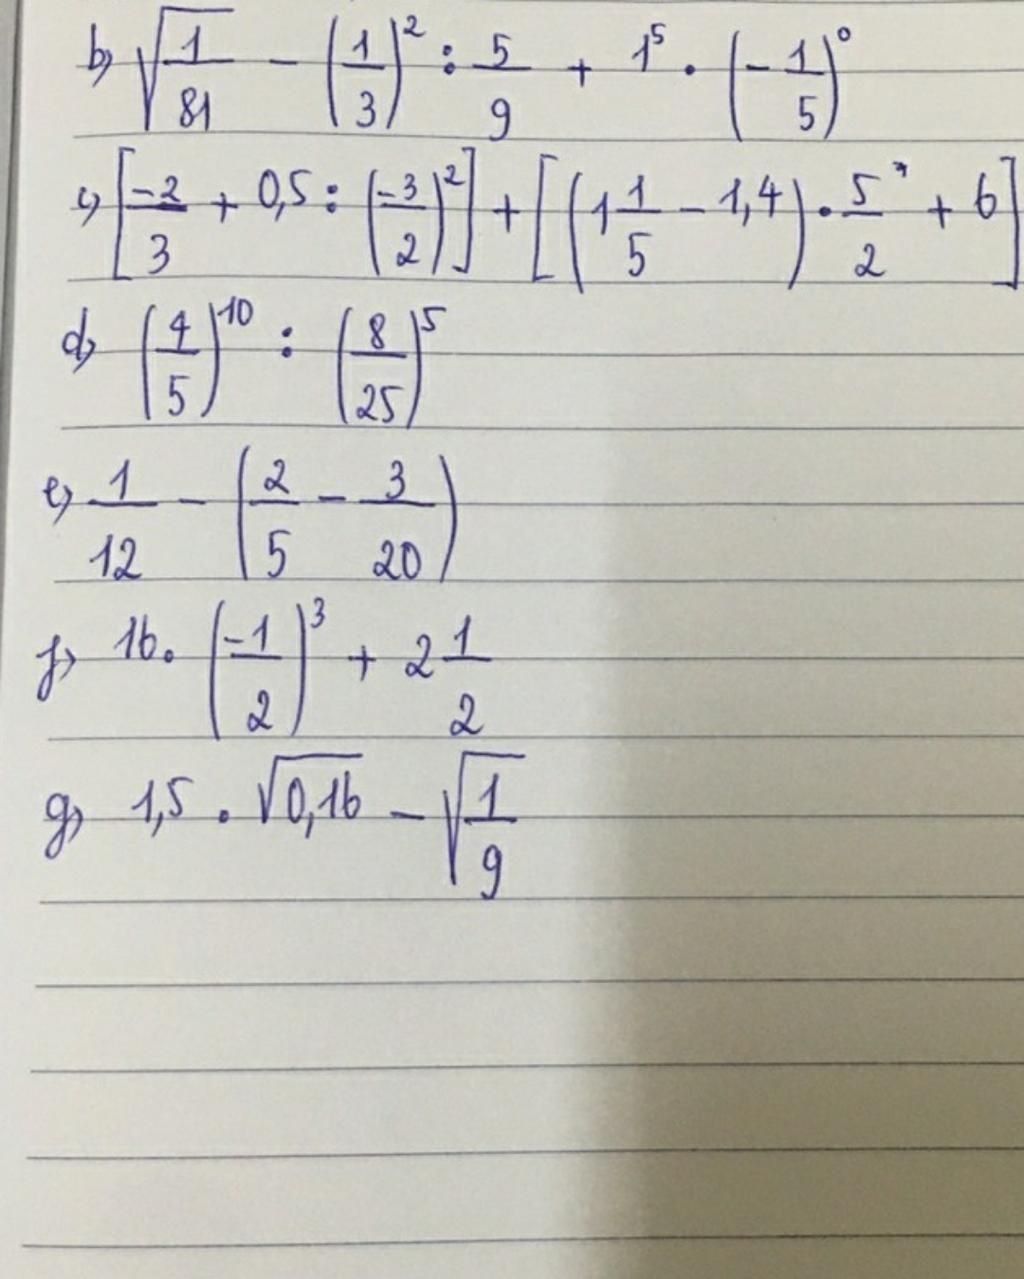 b) √(1/81) - (1/3)² : 5/9 + 1⁵ . (-1/5)⁰
c) [-2/3 + 0,5 : (-3/2)²] + [(1 1/5 - 1,4) . 5/2 + 6]
d) (4/5)¹⁰ : (8/25)⁵
e) 1/12 - (2/5 - 3/20)
f) 16. (-1/2)³ + 2 1/2
g) 1,5 . √0,16 - √(1/9)